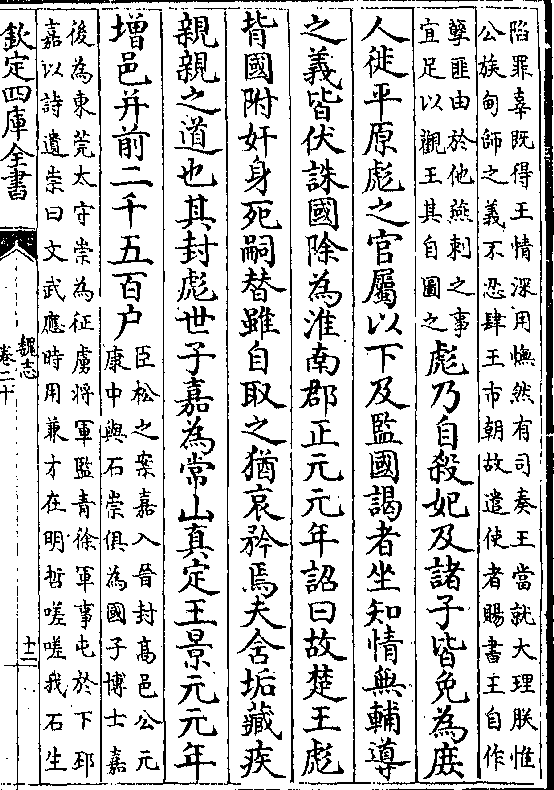 陷罪辜既得王情深用憮然有司奏王當就大理朕惟
公族甸師之義不忍肆王市朝故遣使者賜書王自作
孽匪由於他燕刺之事
宜足以觀王其自圖之
彪乃自殺妃及諸子皆免為庻
人徙平原彪之官屬以下及監國謁者坐知情無輔導
之義皆伏誅國除為淮南郡正元元年詔曰故楚王彪
背國附奸身死嗣替雖自取之猶哀矜焉夫舍垢藏疾
親親之道也其封彪世子嘉為常山真定王景元元年
增邑并前二千五百户
臣松之案嘉入晉封高邑公元
康中與石崇俱為國子博士嘉
後為東莞太守崇為征虜將軍監青徐軍事屯於下邳
嘉以詩遺崇曰文武應時用兼才在明哲嗟嗟我石生
欽定四庫全書
魏志
卷二十
十二